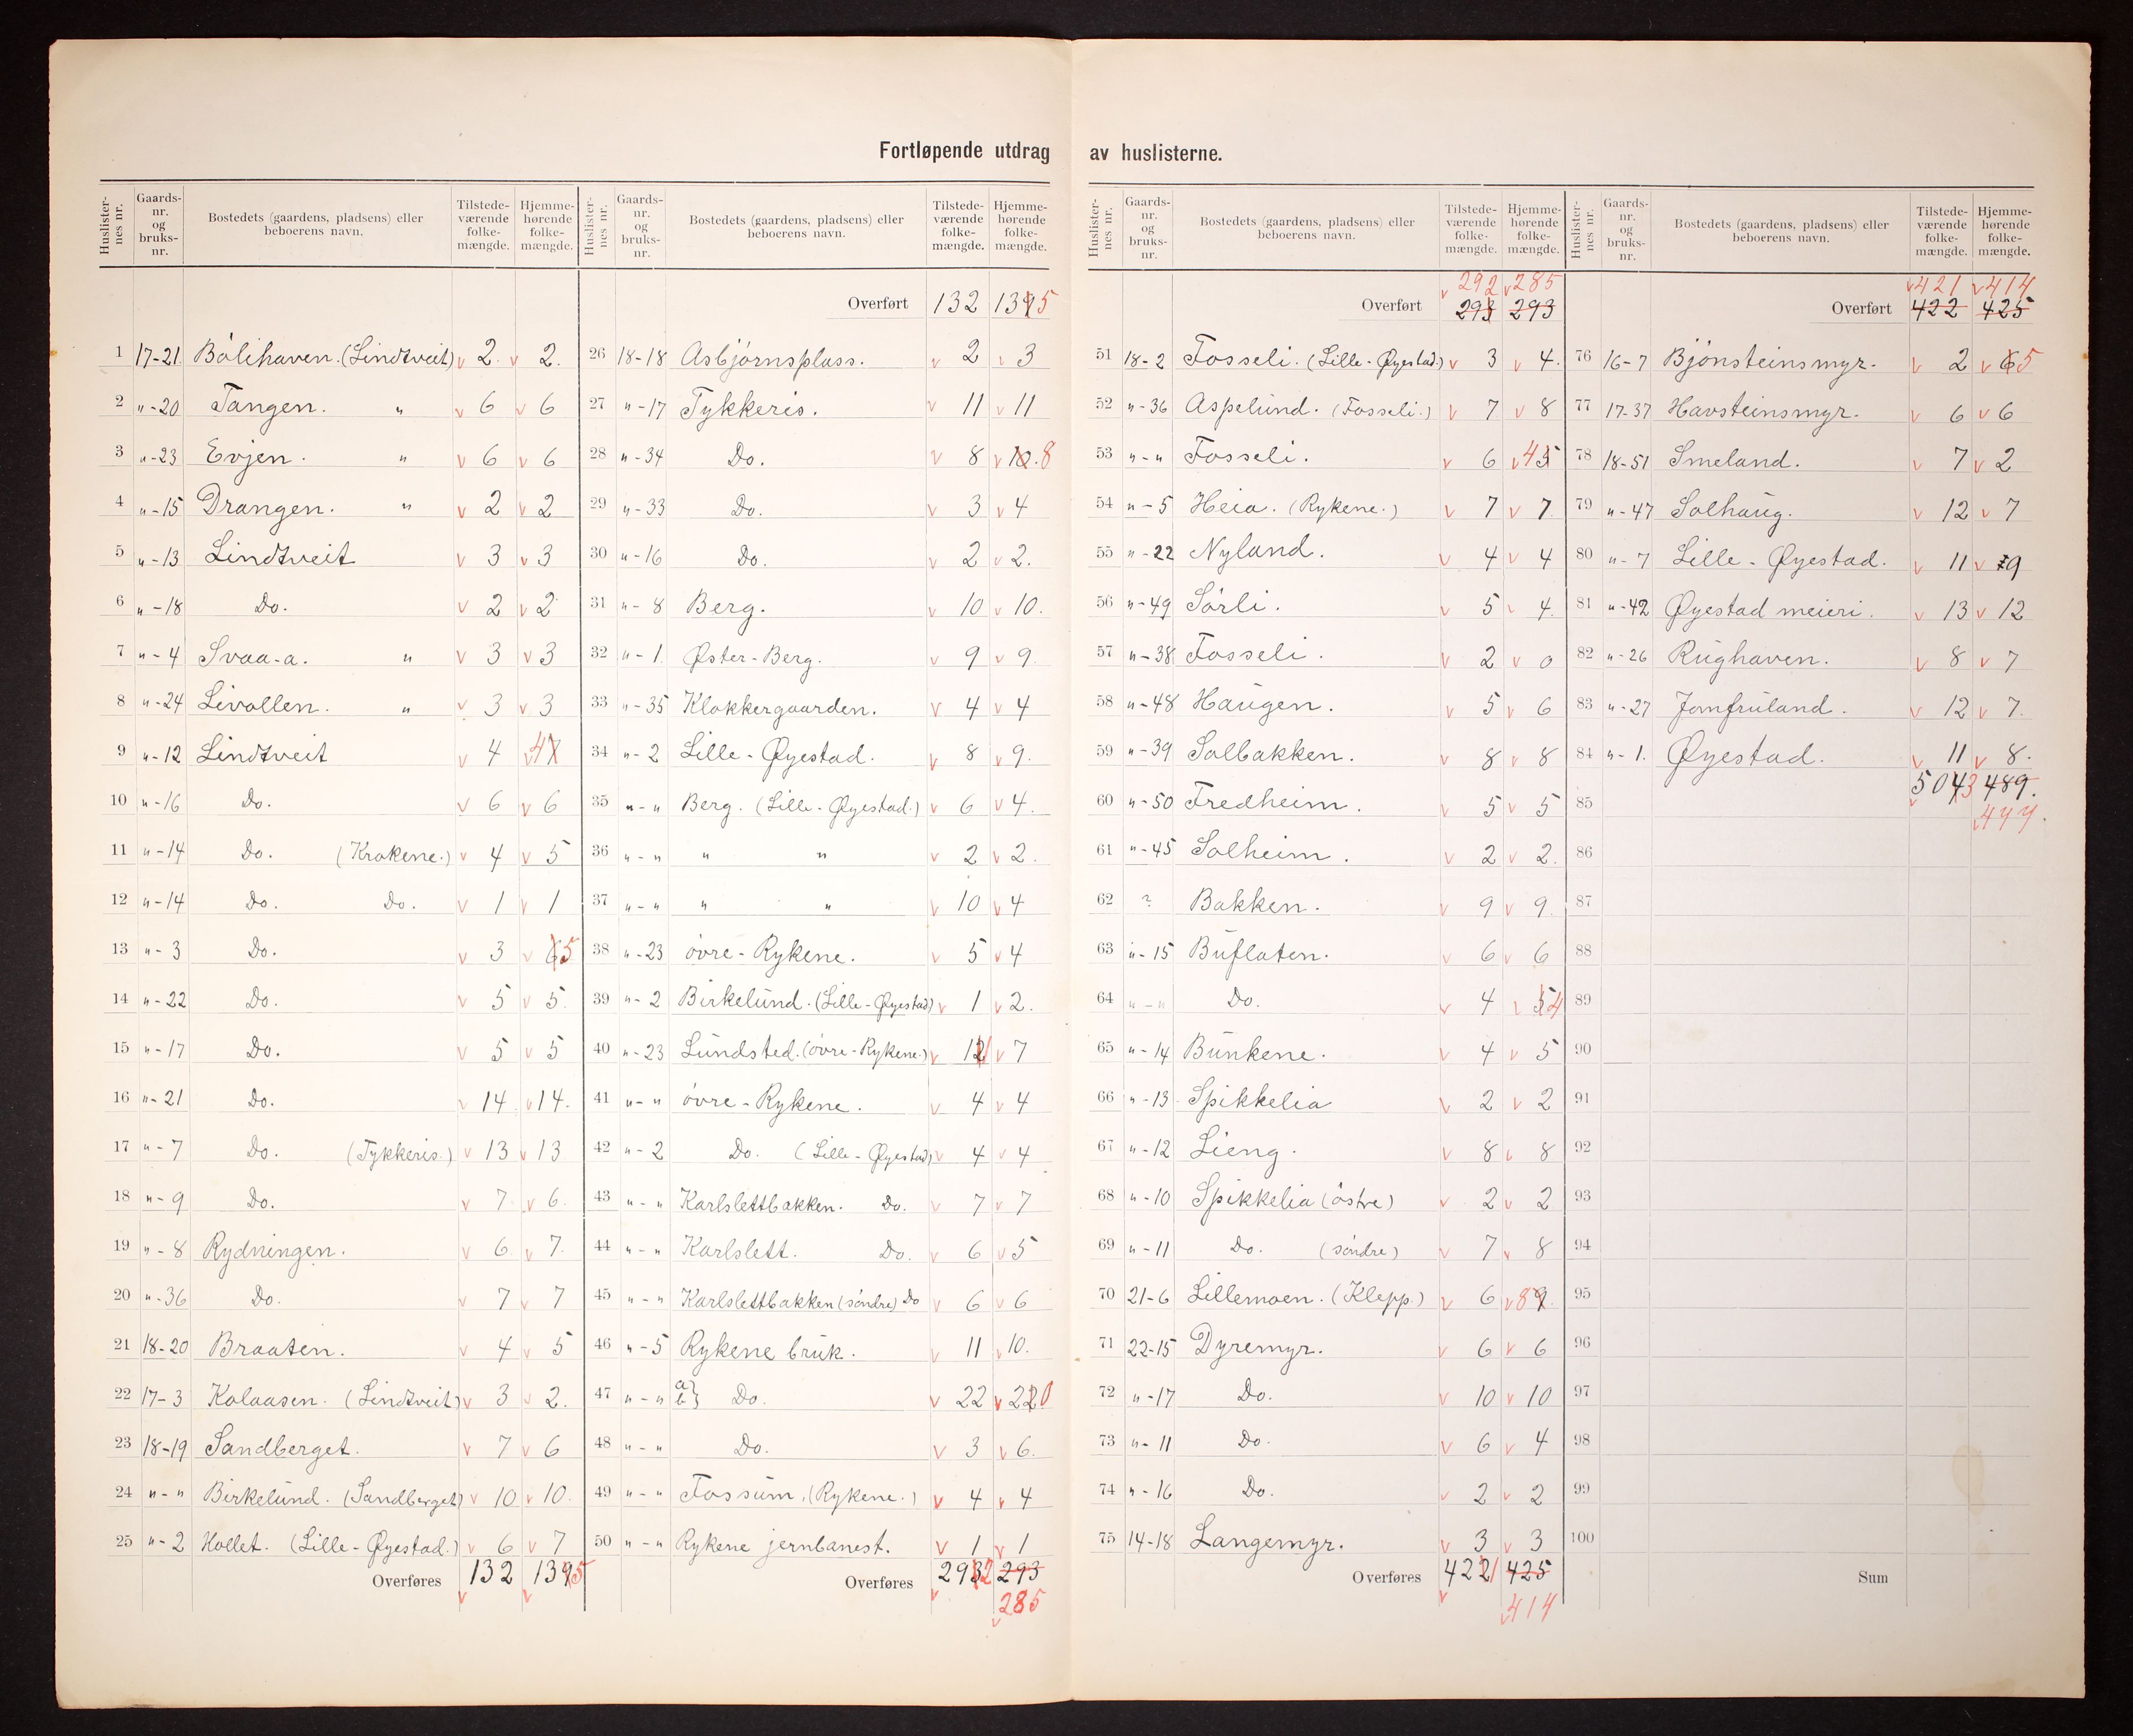 Fortløpende utdrag av huslisterne.
Huslister-nes nr. Gaards-nr. og bruks-nr. Bostedets (gaardens, pladsens) eller beboerens navn. Tilstede-værende folke-mængde. Hjemme-hørende folke-mængde.
1 17-21 Bölihaven. (Lindtveit) v 2. v 2.
2 "-20 Tangen. " v 6 v 6
3 "-23 Evjen. " v 6 v 6
4 "-15 Drangen. " v 2 v 2
5 "-13 Lindtveit v 3 v 3
6 "-18 Do. v 2 v 2
7 "-4 Svaa-a. " v 3 v 3
8 "-24 Livollen. " v 3 v 3
9 "-12 Lindtveit v 4 v 47
10 "-16 Do. v 6 v 6
11 "-14 Do. (Krokene.) v 4 v 5
12 "-14 Do. Do. v 1 v 1
13 "-3 Do. v 3 v 65
14 "-22 Do. v 5 v 5.
15 "-17 Do. v 5 v 5
16 "-21 Do. v 14 v 14.
17 "-7 Do. (Tykkeris.) v 13 v 13
18 "-9 Do. v 7 v 6.
19 "-8 Rydningen. v 6 v 7.
20 "-36 Do. v 7 v 7
21 18-20 Braaten. v 4 v 5
22 17-3 Kolaasen. (Lindtveit) v 3 v 2.
23 18-19 Sandberget. v 7 v 6
24 "-" Birkelund. (Sandberget) v 10 v 10.
25 "-2 Hollet. (Lille-Øyestad.) v 6 v 7
Overføres 132 1395
v v
Huslister-nes nr. Gaards-nr. og bruks-nr. Bostedets (gaardens, pladsens) eller beboerens navn. Tilstede-værende folke-mængde. Hjemme-hørende folke-mængde.
Overført 132 1395
26 18-18 Asbjörnsplass. v 2 v 3
27 "-17 Tykkeris. v 11 v 11
28 "-34 Do. v 8 v 10. 8
29 "-33 Do. v 3 v 4
30 "-16 Do. v 2 v 2.
31 "-8 Berg. v 10 v 10.
32 "-1. Øster-Berg. v 9 v 9.
33 "-35 Klokkergaarden. v 4 v 4
34 "-2 Lille-Øyestad. v 8 v 9.
35 "-" Berg. (Lille-Øyestad.) v 6 v 4.
36 "-" " " v 2 v 2.
37 "-" " " v 10 v 4
38 "-23 övre-Rykene. v 5 v 4
39 "-2 Birkelund. (Lille-Øyestad) v 1 v 2.
40 "-23 Lundsted. (övre-Rykene.) v 121 v 7
41 "-" övre-Rykene. v 4 v 4
42 "-2 Do. (Lille-Øyestad) v 4 v 4
43 "-" Karlslettbakken. Do. v 7 v 7
44 "-" Karlslett. Do. v 6 v 5
45 "-" Karlslettbakken (söndre) Do v 6 v 6
46 "-5 Rykene bruk. v 11 v 10.
47 "-" a b} Do. v 22 v 220
48 "-" Do. v 3 v 6.
49 "-" Fossum. (Rykene.) v 4 v 4
50 "-" Rykene jernbanest. v 1 v 1
Overføres 2932 293
v v 285
Huslister-nes nr. Gaards-nr. og bruks-nr. Bostedets (gaardens, pladsens) eller beboerens navn. Tilstede-værende folke-mængde. Hjemme-hørende folke-mængde.
v 292 v 285
Overført 293 293
51 18-2 Fosseli. (Lille-Øyestad.) v 3 v 4.
52 "-36 Aspelund. (Fosseli.) v 7 v 8
53 "-" Fosseli. v 6 v 45
54 "-5 Heia. (Rykene.) v 7 v 7
55 "-22 Nyland. v 4 v 4
56 "-49 Sörli. v 5 v 4.
57 "-38 Fosseli. v 2 v 0
58 "-48 Haugen. v 5 v 6
59 "-39 Solbakken. v 8 v 8
60 "-50 Fredheim. v 5 v 5
61 "-45 Solheim. v 2 v 2.
62 ? Bakken. v 9 v 9.
63 "-15 Buflaten. v 6 v 6
64 "-" Do. v 4 v 54
65 "-14 Bunkene. v 4 v 5
66 "-13. Spikkelia v 2 v 2
67 "-12 Lieng. v 8 v 8
68 "-10 Spikkelia (östre) v 2 v 2
69 "-11 Do. (söndre) v 7 v 8
70 21-6 Lillemoen. (Klepp.) v 6 v 89.
71 22-15 Dyremyr. v 6 v 6
72 "-17 Do. v 10 v 10
73 "-11 Do. v 6 v 4
74 "-16 Do. v 2 v 2
75 14-18 Langemyr. v 3 v 3
Overføres 4221 425
v v 414
Huslister-nes nr. Gaards-nr. og bruks-nr. Bostedets (gaardens, pladsens) eller beboerens navn. Tilstede-værende folke-mængde. Hjemme-hørende folke-mængde.
v 421 v 414
Overført 422 425
76 16-7 Bjönsteinsmyr. v 2 v 65
77 17-37 Havsteinsmyr. v 6 v 6
78 18-51 Smeland. v 7 v 2
79 "-47 Solhaug. v 12 v 7
80 "-7 Lille-Øyestad. v 11 v 79
81 "-42 Øyestad meieri. v 13 v 12
82 "-26 Rughaven. v 8 v 7
83 "-27 Jomfruland. v 12 v 7.
84 "-1. Øyestad. v 11 v 8.
5043 489.
85 v v 477.
86
87
88
89
90
91
92
93
94
95
96
97
98
99
100
Sum